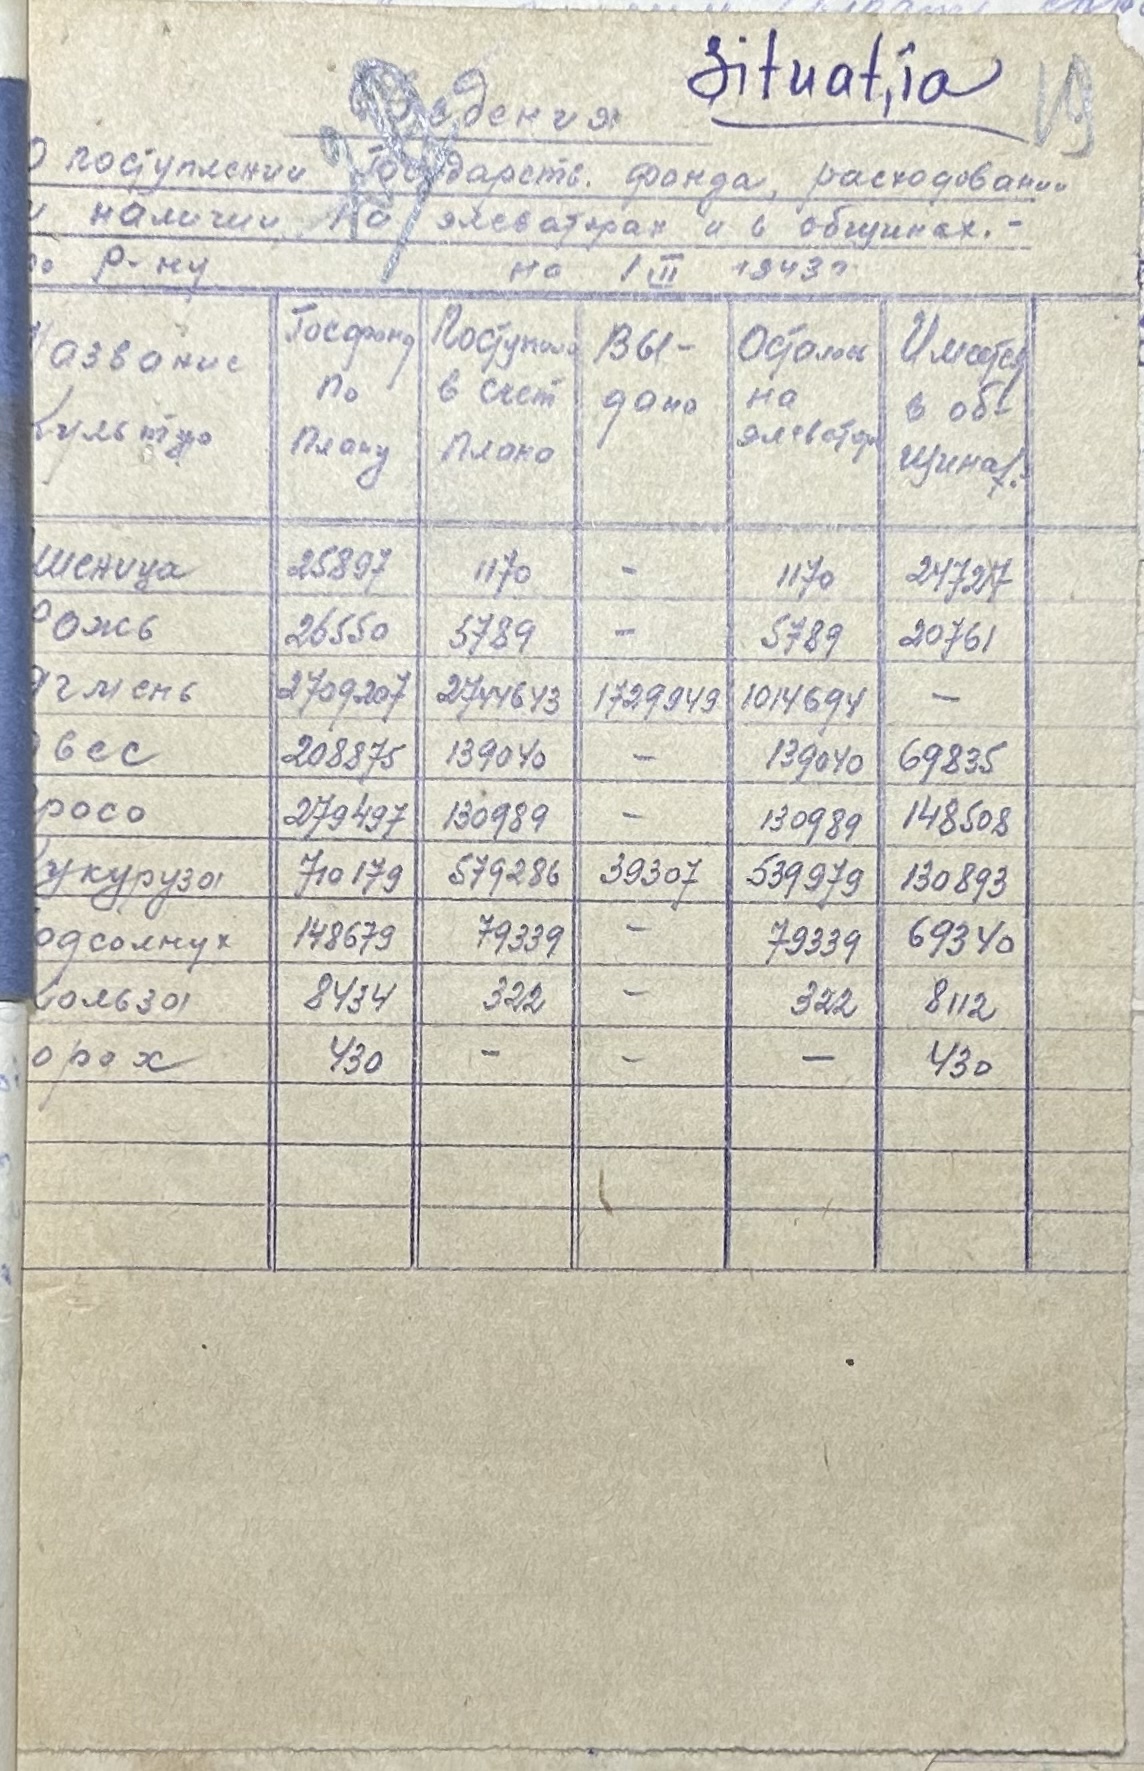 Situatia
19
Сведения
О поступлении Государств. фонда, расходовании
и наличии на элеваторах и в общинах. -
по Р-ну на 1 III 1943 г
Название культур | Госфонд по плану | Поступило в счет плана | Вы-дано | Осталось на элеватор | Имеется в об-щинах.
Пшеница 25897 1170 - 1170 24727
Рожь 26550 5789 - 5789 20761
Ячмень 2709207 2744643 1729949 1014694 -
Овес 208875 139040 - 139040 69835
Просо 279497 130989 - 130989 148508
Кукуруза 710179 579286 39307 539979 130893
Подсолнух 148679 79339 - 79339 69340
Кольза 8434 322 - 322 8112
Горох 430 - - - 430